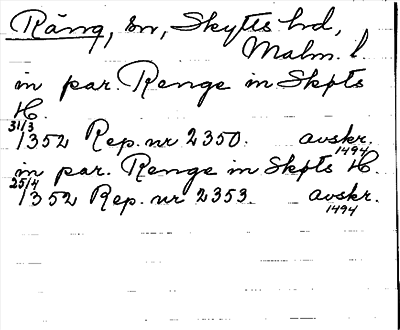 Räng, sn, Skytts hd,
Malm. l.
in par. Renge in Skpts
H.
31/3 1352 Rep. nr 2350. avskr. 1494
in par. Renge in Skpts H.
25/4 1352 Rep. nr 2353. avskr. 1494